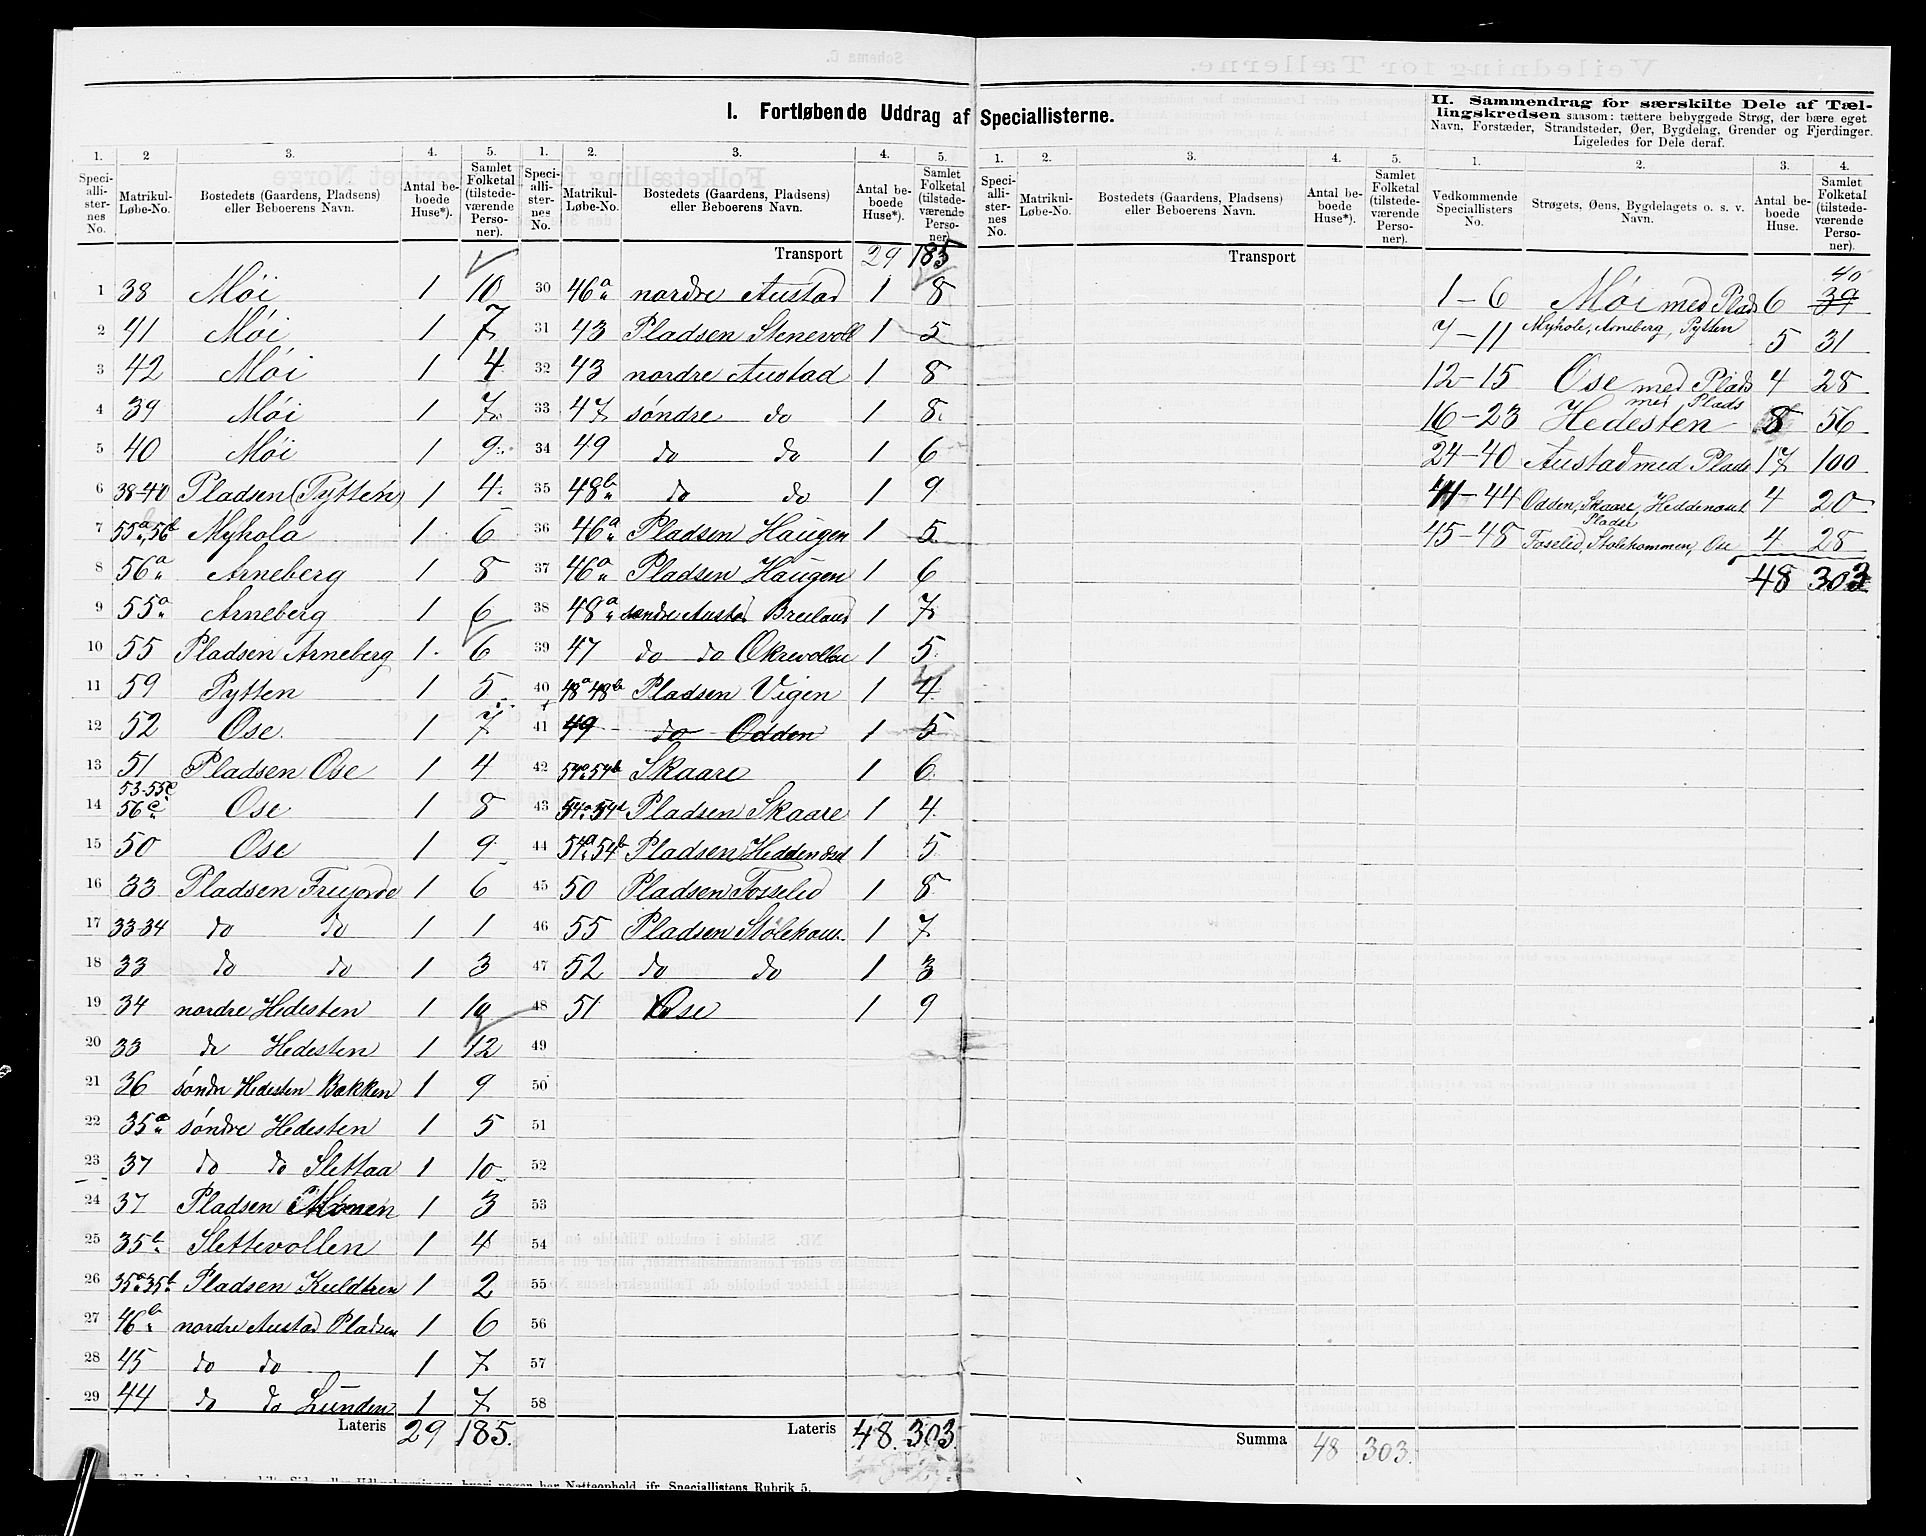 I. Fortløbende Uddrag af Speciallisterne.
II. Sammendrag for særskilte Dele af Tæl-
lingskredsen saasom: tættere bebyggede Strøg, der bære eget
Navn, Forstæder, Strandsteder, Øer, Bygdelag, Grender og Fjerdinger.
Ligeledes for Dele deraf.
1. 2 3. 4. 5. 1. 2. 3. 4. 5. 1. 2. 3. 4. 5. 1. 2. 3. 4.
Speci-alli-ster-nes No. Matrikul-Løbe-No. Bostedets (Gaardens, Pladsens) eller Beboerens Navn. Antal be-boede Huse*). Samlet Folketal (tilstede-værende Perso-ner).
Speci-alli-ster-nes No. Matrikul-Løbe-No. Bostedets (Gaardens, Pladsens) eller Beboerens Navn. Antal be-boede Huse*). Samlet Folketal (tilstede-værende Perso-ner)
Speci-alli-ster-nes No. Matrikul-Løbe-No. Bostedets (Gaardens, Pladsens) eller Beboerens Navn. Antal be-boede Huse*). Samlet Folketal (tilstede-værende Perso-ner).
Vedkommende Speciallisters No. Strøgets, Øens, Bygdelagets o. s. v. Navn. Antal be-boede Huse. Samlet Folketal (tilstede-værende Perso-ner).
1 38 Møi 1 10
2 41 Møi 1 7
3 42 Møi 1 4
4 39 Møi 1 7
5 40 Møi 1 9
6 38-40 Pladsen (Pytten) 1 4
7 55a, 56b Myhola 1 6
8 56a Arneberg 1 8
9 55a Arneberg 1 6
10 55 Pladsen Arneberg 1 6
11 59 Pytten 1 5
12 52 Ose 1 7
13 51 Pladsen Ose 1 4
14 53-55c 56c Ose 1 8
15 50 Ose 1 9
16 33 Pladsen Frejorde 1 6
17 33-34 do do 1 1
18 33 do do 1 3
19 34 nordre Hedesten 1 10
20 33 do Hedesten 1 12
21 36 søndre Hedesten Bakken 1 9
22 35a søndre Hedesten 1 5
23 37 do do Slettaa 1 10
24 37 Pladsen Monen 1 3
25 35b Slettevollen 1 4
26 35a 35b Pladsen Kuldbren 1 2
27 46b nordre Austad Pladsen 1 6
28 45 do do 1 7
29 44 do do Lunden 1 7
Lateris 29 185.
Transport 29 185
30 46a nordre Austad 1 8
31 43 Pladsen Stenevoll 1 5
32 43 nordre Austad 1 8
33 47 søndre do 1 8
34 49 do do 1 6
35 48b do do 1 9
36 46a Pladsen Haugen 1 5
37 46a Pladsen Haugen 1 6
38 48a søndre Austad Breiland 1 7
39 47 do do Okrevollen 1 5
40 48a 48b Pladsen Vigen 1 4
41 49 do Odden 1 5
42 54a 54b Skaare 1 6
43 54a 54d Pladsen Skaare 1 4
44 54a 54b Pladsen Heddenøset 1 5
45 50 Pladsen Tosselid 1 8
46 55 Pladsen Stølehom. 1 7
47 52 do do 1 3
48 51 Ose 1 9
49
50
51
52
53
54
55
56
57
58
Lateris 48. 303.
Transport
Summa 48 303.
1-6 Møi med Plads 6 39 40
7-11 Myhole, Arneberg, Pytten 5 31
12-15 Ose med Plads 4 28
16-23 Hedesten med Plads 8 56
24-40 Austad med Plads 17 100
41-44 Odden, Skaare, Heddenøset 4 20
45-48 Pladser Toselid, Stølehommen, Ose 4 28
48 303